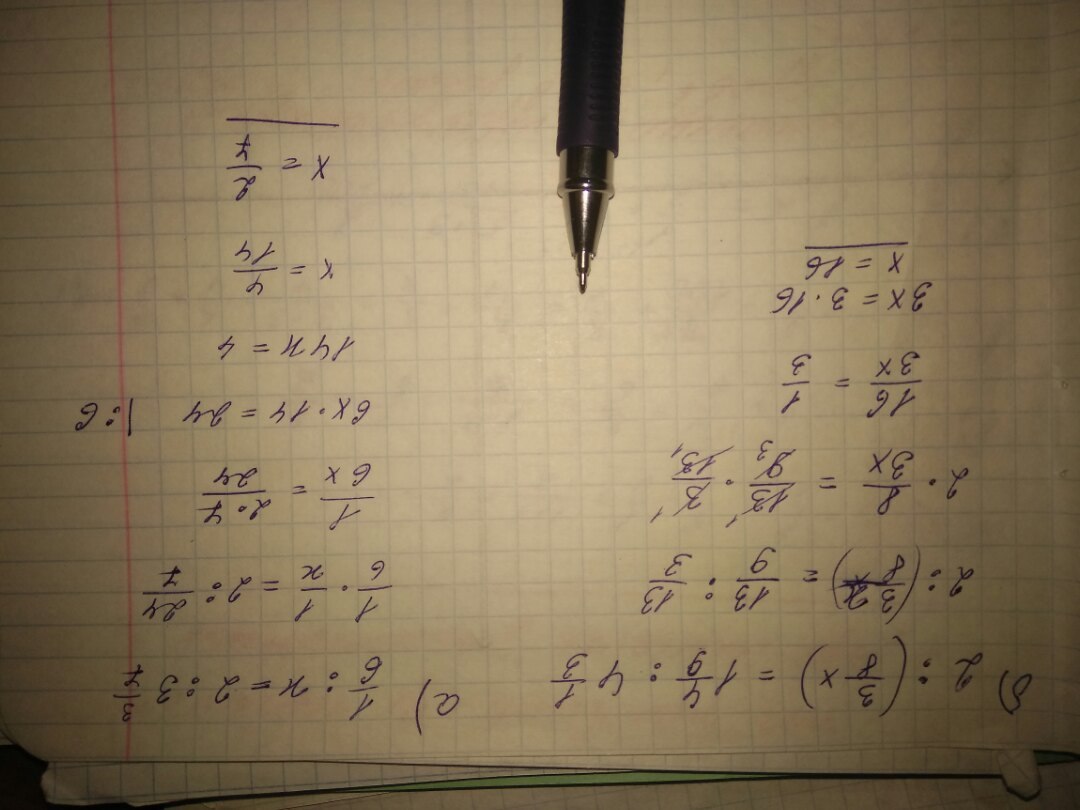 б) 2 : (3/8 x) = 1 4/9 : 4 1/3
2 : (3x/8) = 13/9 : 13/3
2 · 8/3x = 13/9 · 3/13
16/3x = 1/3
3x = 3 · 16
x = 16
а) 1/6 : x = 2 : 3 3/7
1/6 · 1/x = 2 : 24/7
1/6x = 2·7/24
6x · 14 = 24 |:6
14x = 4
x = 4/14
x = 2/7